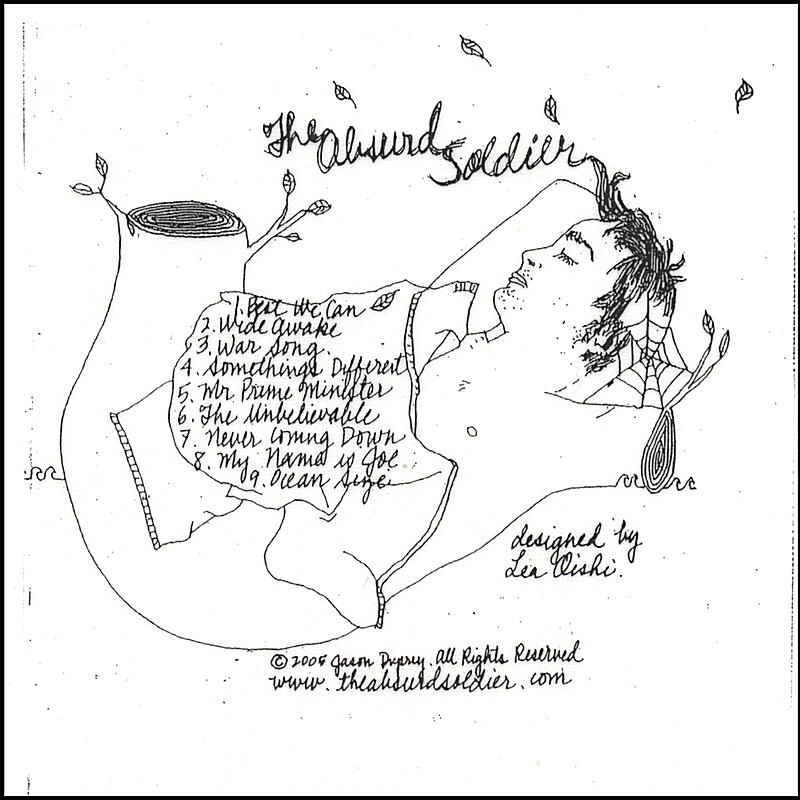 The Absurd Soldier
1. Best We Can
2. Wide Awake
3. War Song.
4. Somethings Different
5. Mr Prime Minister
6. The Unbelievable
7. Never Coming Down
8. My Name is Joe
9. Ocean Size
designed by
Lea Oishi.
© 2005 Jason Duprey. All Rights Reserved
www.theabsurdsoldier.com